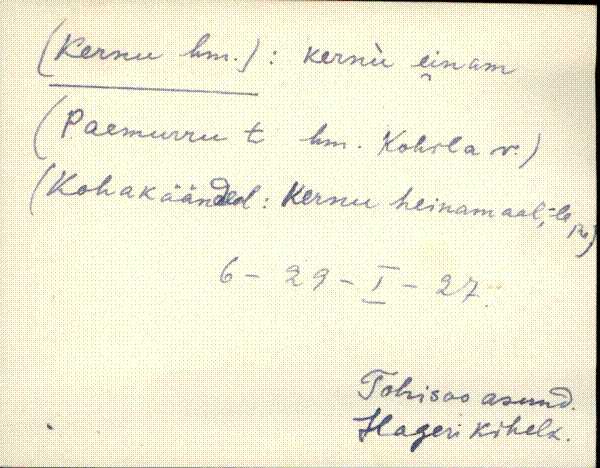 (Kernu hm.): kernù e̯inam
(Paemurru t hm. Kohila v.)
(Kohakäänded: Kernu heinamaal, -le
6 - 29 - I - 27.
Tohisoo asund.
Hageri kihelk.